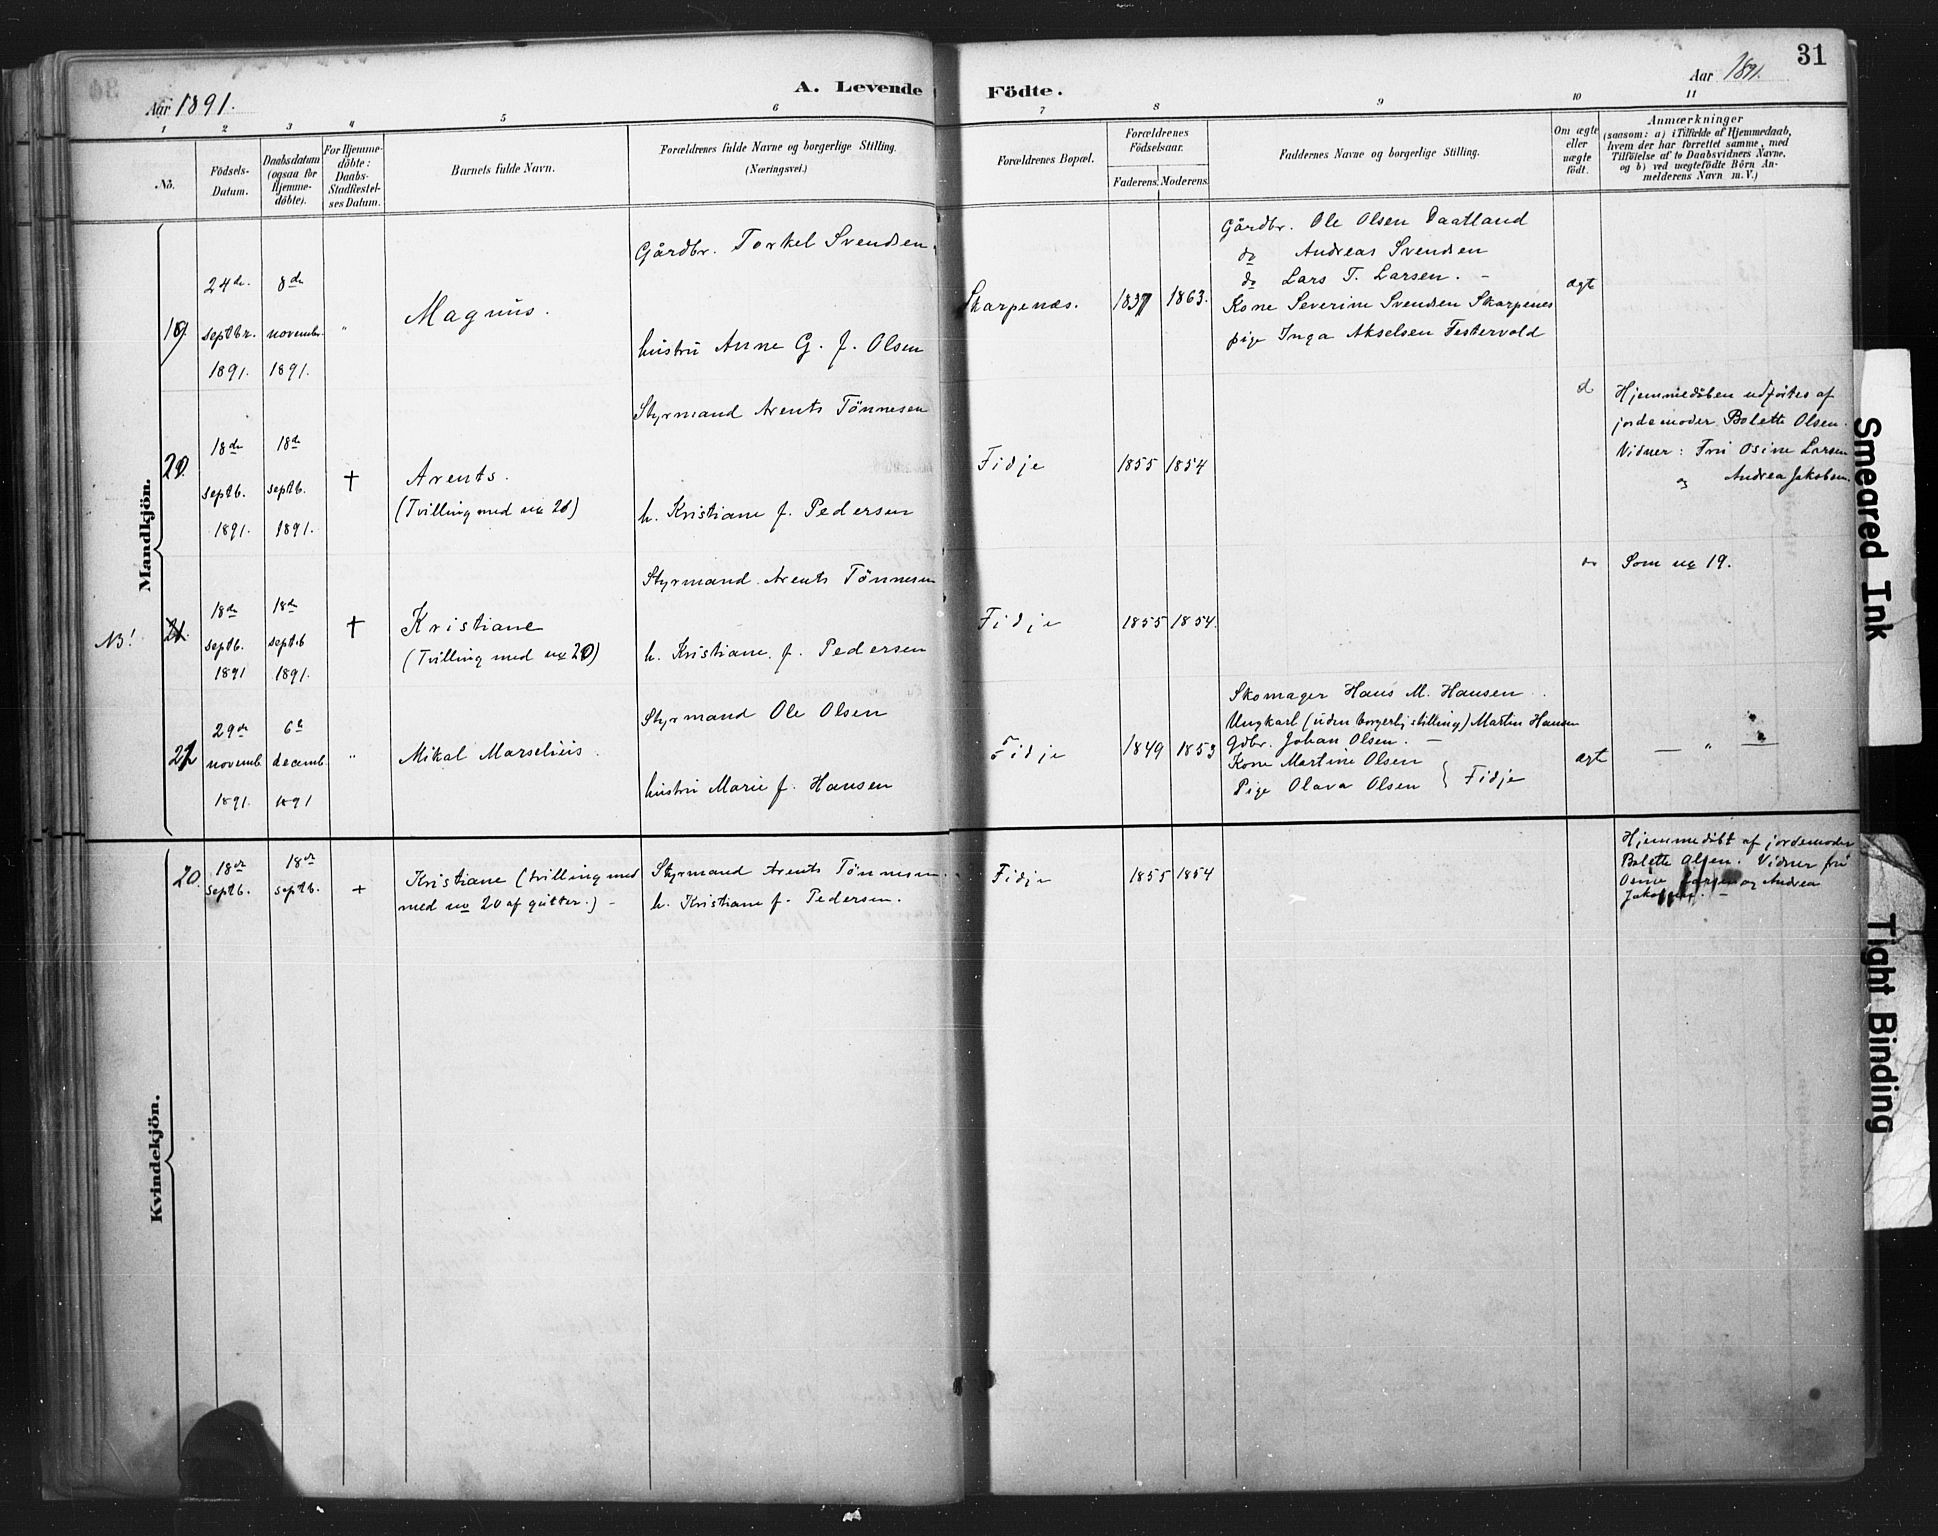 31
Aar 1891.
A. Levende Födte.
Aar 1891.
1 2 3 4 5 6 7 8 9 10 11
No.
Födsels-Datum.
Daabsdatum (ogsaa for Hjemme-döbte).
For Hjemme-döbte: Daabs-Stadfæstel-ses Datum.
Barnets fulde Navn.
Forældrenes fulde Navne og borgerlige Stilling.
(Næringsvei.)
Forældrenes Bopæl.
Forældrenes Födselsaar.
Faderens. Moderens.
Faddernes Navne og borgerlige Stilling.
Om ægte eller uægte födt.
Anmærkninger
(saasom: a) i Tilfælde af Hjemmedaab,
hvem der har forrettet samme, med
Tilföielse af to Daabsvidners Navne,
og b) ved uægtefödte Börn An-
melderens Navn m. V.)
Mandkjön.
19.
24de septbr. 1891.
8de novembr. 1891.
"
Magnus.
Gårdbr. Torkel Svendsen
hustru Anne G. f. Olsen
Skarpenæs.
1837
1863.
Gårdbr. Ole Olsen Daatland
do Andreas Svendsen
do Lars T. Larsen. -
Kone Severine Svendsen Skarpenes
pige Inga Akselsen Festervold
ægte
20.
18de septb. 1891.
18de septb. 1891.
†
Arents.
(Tvilling med no 21)
Styrmand Arents Tönnesen
h. Kristiane f. Pedersen
Fidje
1855
1854
do
Hjemmedåben udförtes af
jordemoder Bolette Olsen.
Vidner: Fru Osine Larsen
og Andrea Jakobsen.
NB!
21.
18de septb. 1891
18de septb 1891.
†
Kristiane
(Tvilling med no 20)
Styrmand Arents Tönnesen
h. Kristiane f. Pedersen
Fidje
1855
1854.
do
Som no 19.
29de novemb. 1891.
6te decemb. 1891
"
Mikal Marselius.
Styrmand Ole Olsen
hustru Marie f. Hansen
Fidje
1849
1853
Skomager Hans M. Hansen
Ungkarl (uden borgerlig stilling) Martin Hansen
Gdbr. Johan Olsen. —
Kone Martine Olsen
Pige Olava Olsen } Fidje
ægte
— " —
Kvindekjön.
20.
18de septb.
18de septb.
+
Kristiane (tvilling med
med no 20 af gutter.) -
Styrmand Arents Tönnesen.
h. Kristiane f. Pedersen.
Fidje
1855
1854
Hjemmedöbt af jordemoder
Bolette Olsen. Vidner fru
Osine Larsen og Andrea
Jakobsen. -
Smeared Ink
Tight Binding